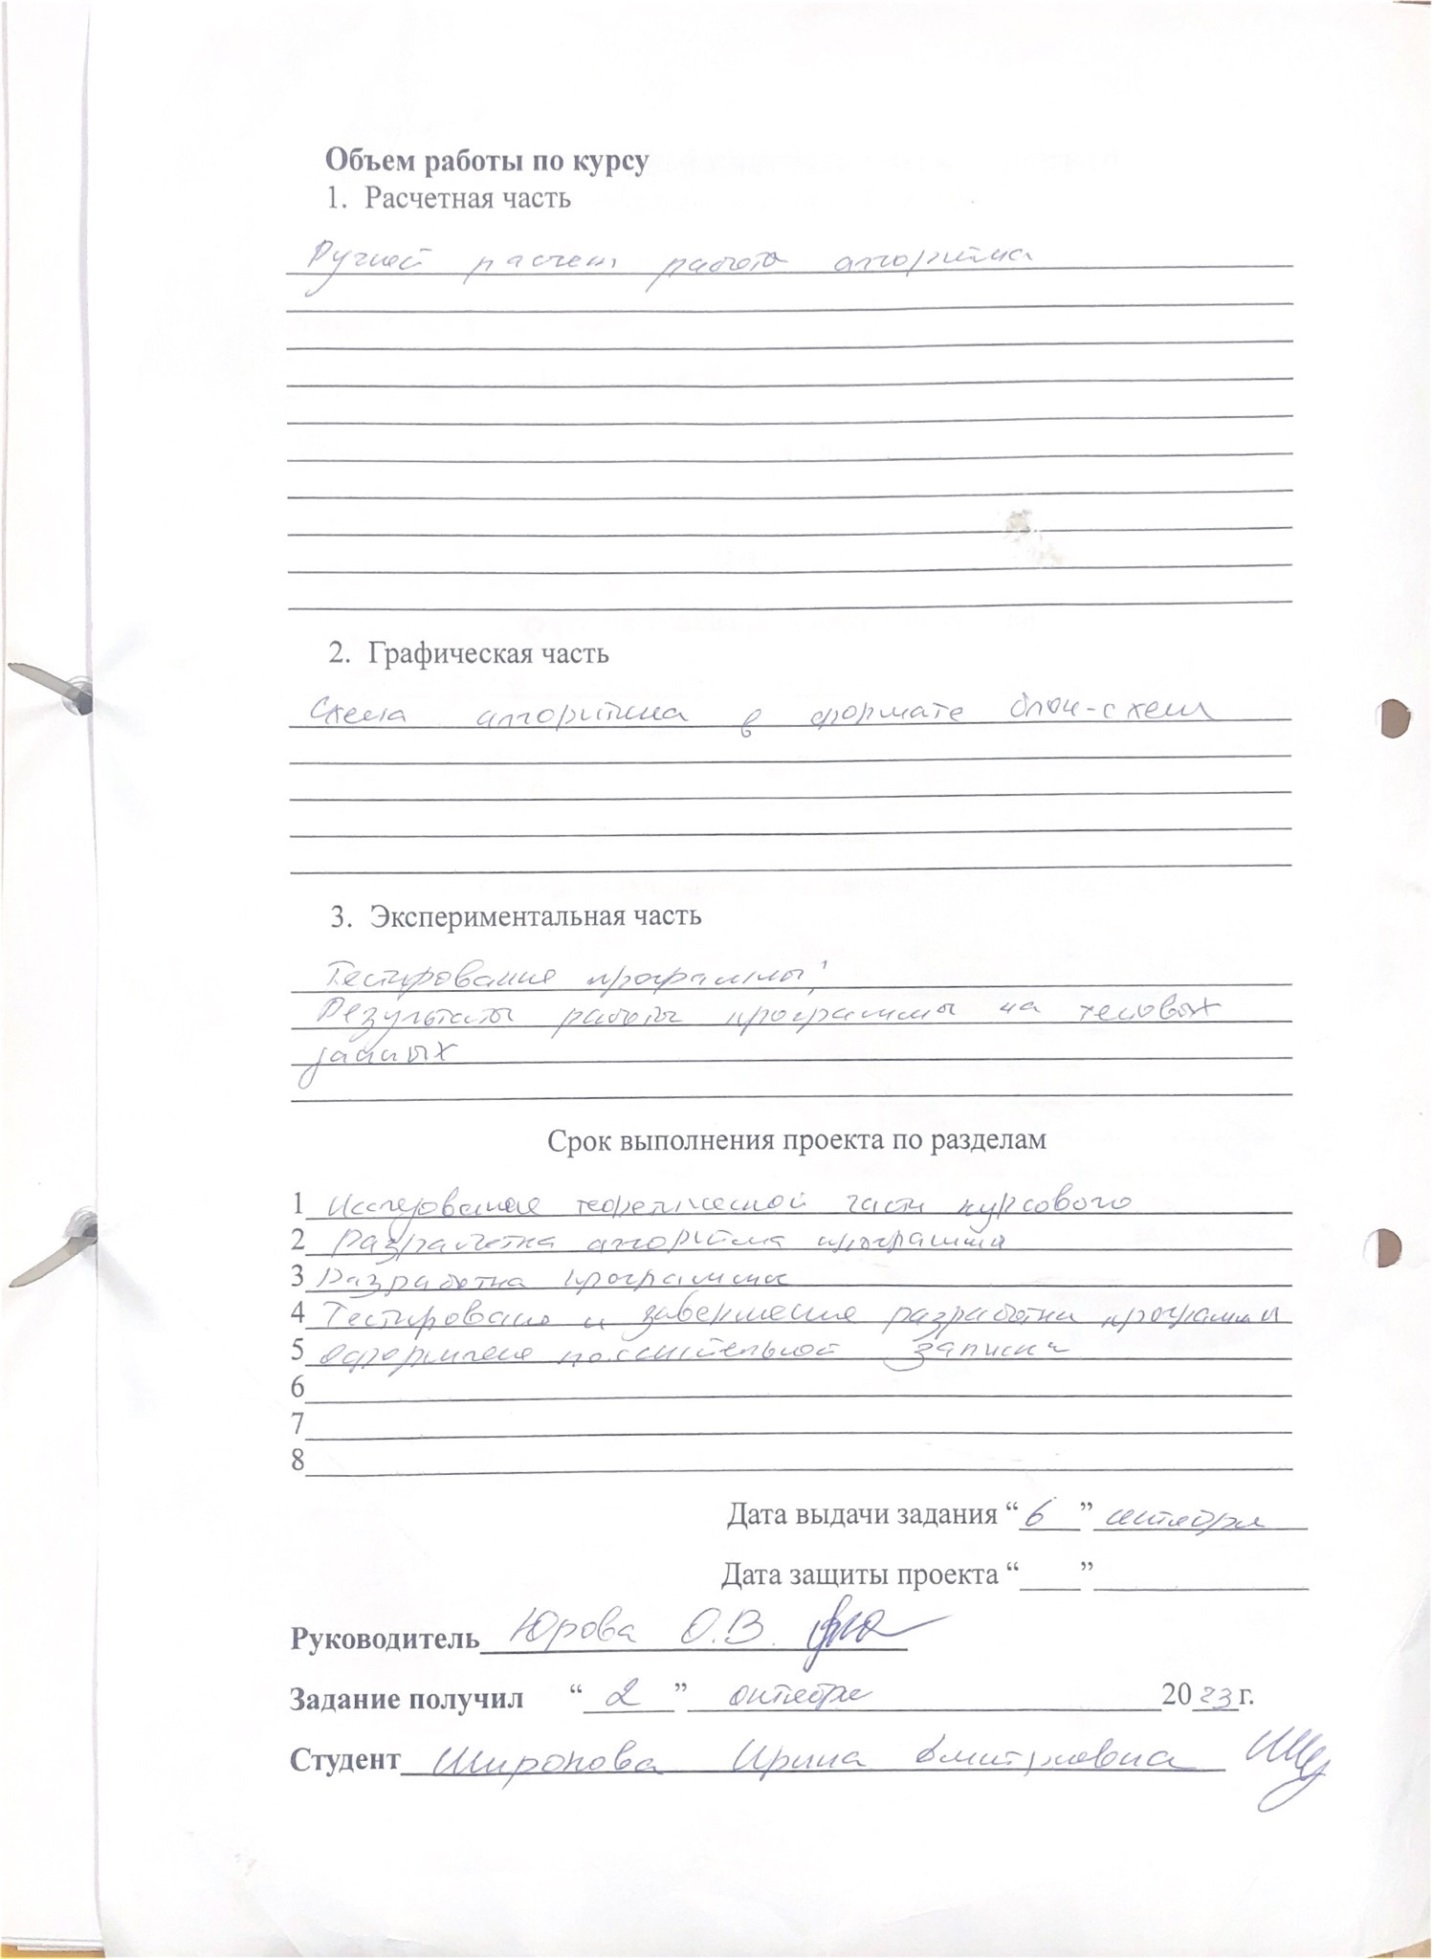 Объем работы по курсу
1. Расчетная часть
Ручной расчет работа алгоритма
2. Графическая часть
Схема алгоритма в формате блок-схем
3. Экспериментальная часть
Тестирование программы;
Результаты работы программы на тестовых
данных
Срок выполнения проекта по разделам
1 Исследование теоретической части курсового
2 Разработка алгоритма программы
3 Разработка программы
4 Тестирование и завершение разработки программы
5 Оформление пояснительной записки
6
7
8
Дата выдачи задания “ 6 ” сентября
Дата защиты проекта “____”
Руководитель Юрова О.В.
Задание получил “ 2 ” октября 2023г.
Студент Широкова Ирина Дмитриевна